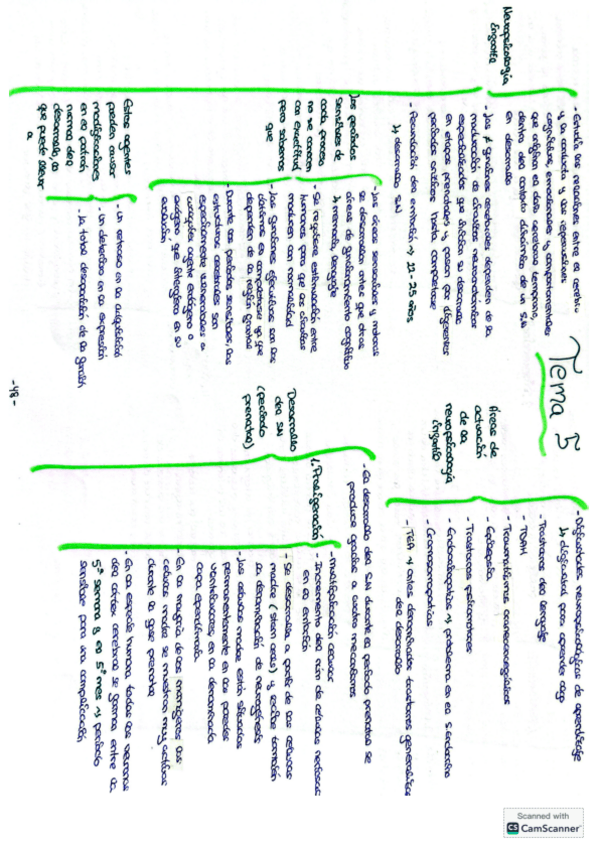 Tema 5
Neuropsicología
Infantil
- Estudia las relaciones entre el cerebro
y la conducta y las repercusiones
cognitivas, emocionales y comportamentales
que origina el daño cerebral temprano,
dentro del contexto dinámico de un SN
en desarrollo
- Las ≠ funciones cerebrales dependen de la
maduración de circuitos neuroanatómicos
especializados que inician su desarrollo
en etapas prenatales y pasan por diferentes
períodos críticos hasta completarse
- Fecundación del embrión → 22-25 años
↳ desarrollo SN
Los períodos
sensibles de
cada proceso
no se conocen
con exactitud
pero sabemos
que
- Las áreas sensoriales y motoras
se desarrollan antes que otras
áreas de funcionamiento cognitivo
↳ memoria, lenguaje
- Se requiere estimulación entre
humanos para que los circuitos
maduren con normalidad
- Las funciones ejecutivas son las
últimas en completarse ya que
dependen de la región frontal
- Durante los períodos sensibles, las
estructuras cerebrales son
especialmente vulnerables a
cualquier agente endógeno o
exógeno que interfiera en su
evolución
Estos agentes
pueden causar
modificaciones
en el patrón
normal del
desarrollo, lo
que puede llevar
a
- Un retraso en la adquisición
- Un deterioro en la expresión
- La total desaparición de la función
Áreas de
actuación
de la
neuropsicología
infantil
- Dificultades neuropsicológicas de aprendizaje
↳ dificultad para aprender algo
- Trastornos del lenguaje
- TDAH
- Traumatismos craneoencefálicos
- Epilepsia
- Trastornos psicomotores
- Endocrinopatías → problema en el S. endocrino
- Cromosomopatías
- TEA → antes denominados trastornos generalizados
del desarrollo
Desarrollo
del SN
(período
prenatal)
- El desarrollo del SN durante el período prenatal se
produce gracias a cuatro mecanismos
1. Proliferación
- Multiplicación celular
- Incremento del núm de células nerviosas
en el embrión
- Se desarrolla a partir de las células
madre (stem cells) y recibe también
la denominación de neurogénesis
- Las células madre están situadas
permanentemente en las paredes
ventriculares, en la denominada
capa ependimaria.
- En la mayoría de los mamíferos las
células madre se muestran muy activas
durante la fase prenatal
- En la especie humana, todas las neuronas
del córtex cerebral se forman entre la
5ª semana y el 5º mes → período
sensible para una complicación
-48-
Scanned with
CS CamScanner